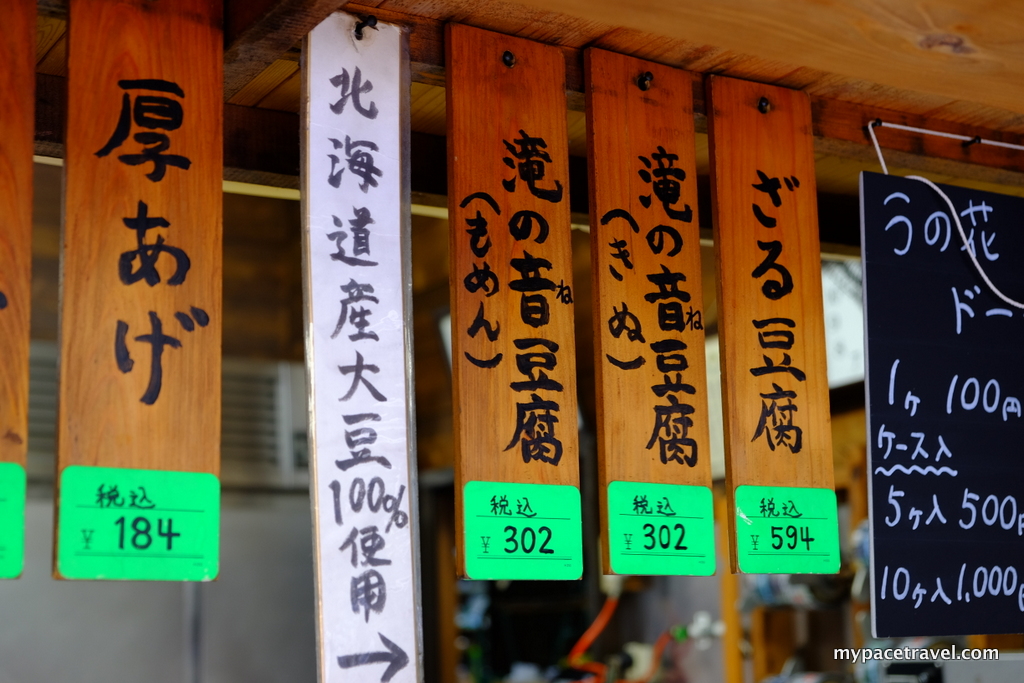 厚あげ
税込
¥184
北海道産大豆100%使用→
滝の音豆腐
ね
(もめん)
税込
¥302
滝の音豆腐
ね
(きぬ)
税込
¥302
ざる豆腐
税込
¥594
うの花
ドー
1ヶ 100円
ケース入
5ヶ入 500円
10ヶ入 1,000円
mypacetravel.com